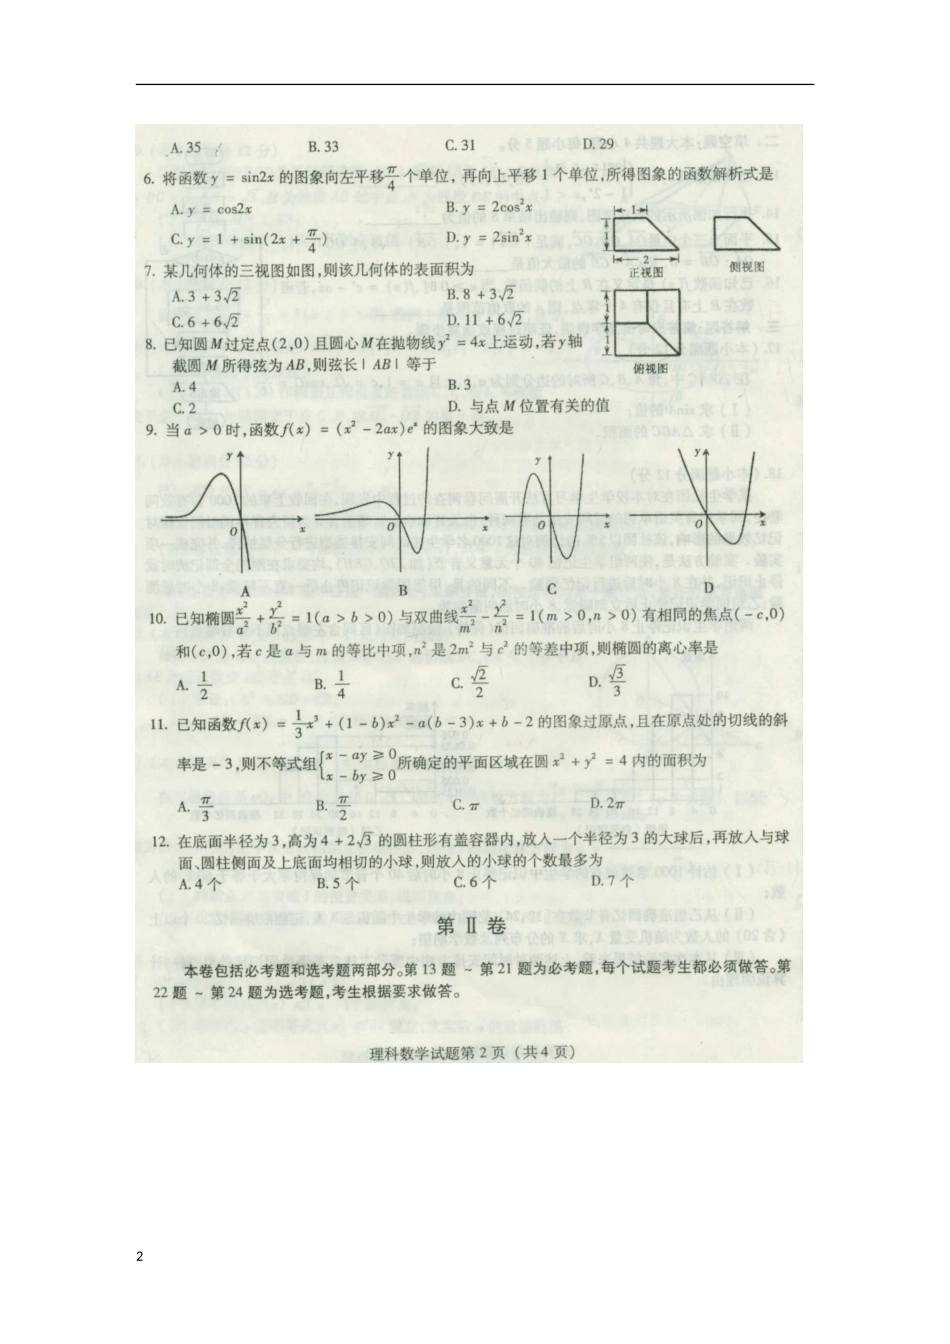 A. 35 B. 33 C. 31 D. 29
6. 将函数 y = sin2x 的图象向左平移 π/4 个单位，再向上平移 1 个单位,所得图象的函数解析式是
A. y = cos2x B. y = 2cos²x
C. y = 1 + sin(2x + π/4) D. y = 2sin²x
7. 某几何体的三视图如图,则该几何体的表面积为
A. 3 + 3√2 B. 8 + 3√2
C. 6 + 6√2 D. 11 + 6√2
1
1
1
2
正视图
侧视图
1
1
俯视图
8. 已知圆 M 过定点(2,0)且圆心 M 在抛物线 y² = 4x 上运动,若 y 轴
截圆 M 所得弦为 AB,则弦长 | AB | 等于
A. 4 B. 3
C. 2 D. 与点 M 位置有关的值
9. 当 a > 0 时,函数 f(x) = (x² - 2ax)eˣ 的图象大致是
y y y y
O x O x O x O x
A B C D
10. 已知椭圆 x²/a² + y²/b² = 1(a > b > 0) 与双曲线 x²/m² - y²/n² = 1(m > 0,n > 0) 有相同的焦点( - c,0)
和(c,0) ,若 c 是 a 与 m 的等比中项,n² 是 2m² 与 c² 的等差中项,则椭圆的离心率是
A. 1/2 B. 1/4 C. √2/2 D. √3/3
11. 已知函数 f(x) = 1/3 x³ + (1 - b)x² - a(b - 3)x + b - 2 的图象过原点,且在原点处的切线的斜
率是 - 3,则不等式组{x - ay ≥ 0 x - by ≥ 0 所确定的平面区域在圆 x² + y² = 4 内的面积为
A. π/3 B. π/2 C. π D. 2π
12. 在底面半径为 3,高为 4 + 2√3 的圆柱形有盖容器内,放入一个半径为 3 的大球后,再放入与球
面、圆柱侧面及上底面均相切的小球,则放入的小球的个数最多为
A. 4 个 B. 5 个 C. 6 个 D. 7 个
第 Ⅱ 卷
本卷包括必考题和选考题两部分。第 13 题 ~ 第 21 题为必考题,每个试题考生都必须做答。第
22 题 ~ 第 24 题为选考题,考生根据要求做答。
理科数学试题第 2 页 (共 4 页)
2